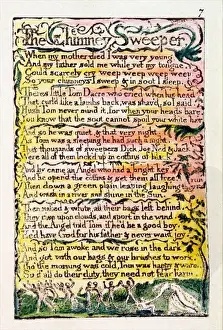 7
The Chimney Sweeper
When my mother died I was very young,
And my father sold me while yet my tongue,
Could scarcely cry weep weep weep weep,
So your chimneys I sweep & in soot I sleep,
Theres little Tom Dacre who cried when his head
That curl'd like a lambs back, was shav'd, so I said.
Hush Tom never mind it, for when your head's bare,
You know that the soot cannot spoil your white hair
And so he was quiet, & that very night,
As Tom was a sleeping he had such a sight,
That thousands of sweepers Dick, Joe, Ned & Jack
Were all of them lock'd up in coffins of black,
And by came an Angel who had a bright key,
And he open'd the coffins & set them all free,
Then down a green plain leaping laughing they run
And wash in a river and shine in the Sun.
Then naked & white, all their bags left behind,
They rise upon clouds, and sport in the wind.
And the Angel told Tom, if he'd be a good boy,
He'd have God for his father & never want joy.
And so Tom awoke and we rose in the dark
And got with our bags & our brushes to work.
Tho' the morning was cold, Tom was happy & warm,
So if all do their duty, they need not fear harm.